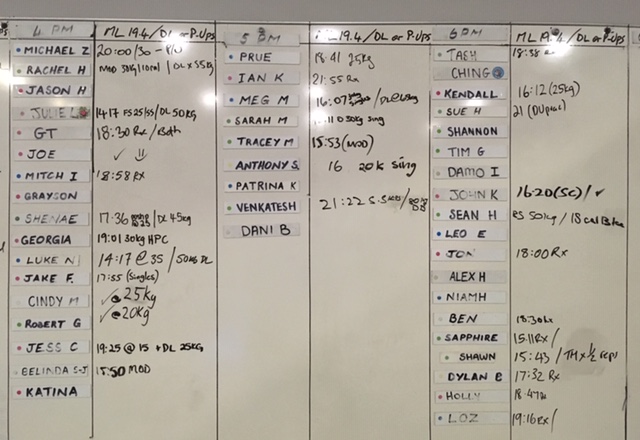 4 PM ML 19.4 / DL or P.Ups
MICHAEL Z 20:00/30 - P/U
RACHEL H MOD DL x 35kg
JASON H
JULIE L 14:17 FS 25/55/DL 50KG
GT 18:30 Rx / Both
JOE ✓
MITCH I 18:58 Rx
GRAYSON
SHENAE 17:36 /DL 45kg
GEORGIA 19:01 30kg HPC
LUKE N 14:17 @ 35 / 50KG DL
JAKE F. 17:55 (Singles)
CINDY M ✓ @ 25kg
ROBERT G ✓ @ 20kg
JESS C 19:25 @ 15 + DL 25KG
BELINDA S-J 15:50 MOD
KATINA
5 PM ML 19.4 / DL or P.Ups
PRUE 18:41 25kg
IAN K 21:55 Rx
MEG M 16:07 /DL@
SARAH M 30kg sing
TRACEY M 15:53 (MOD)
ANTHONY S. 16 20K Sing
PATRINA K
VENKATESH 21:22
DANI B
6 PM ML 19.4 / DL or P-Ups
TAEH 18:38 Rx
CHING
KENDALL 16:12 (25kg)
SUE H 21
SHANNON
TIM G
DAMO I
JOHN K 16:20 (SC) / ✓
SEAN H RS 50kg / 18 Cal Bike
LEO E
JON 18:00 Rx
ALEX H
NIAMH
BEN 18:30 Rx
SAPPHIRE 15:11 Rx /
SHAWN 15:43 / TH x ½ reps
DYLAN B 17:32 Rx
HOLLY 18:47
LOZ 19:16 Rx /